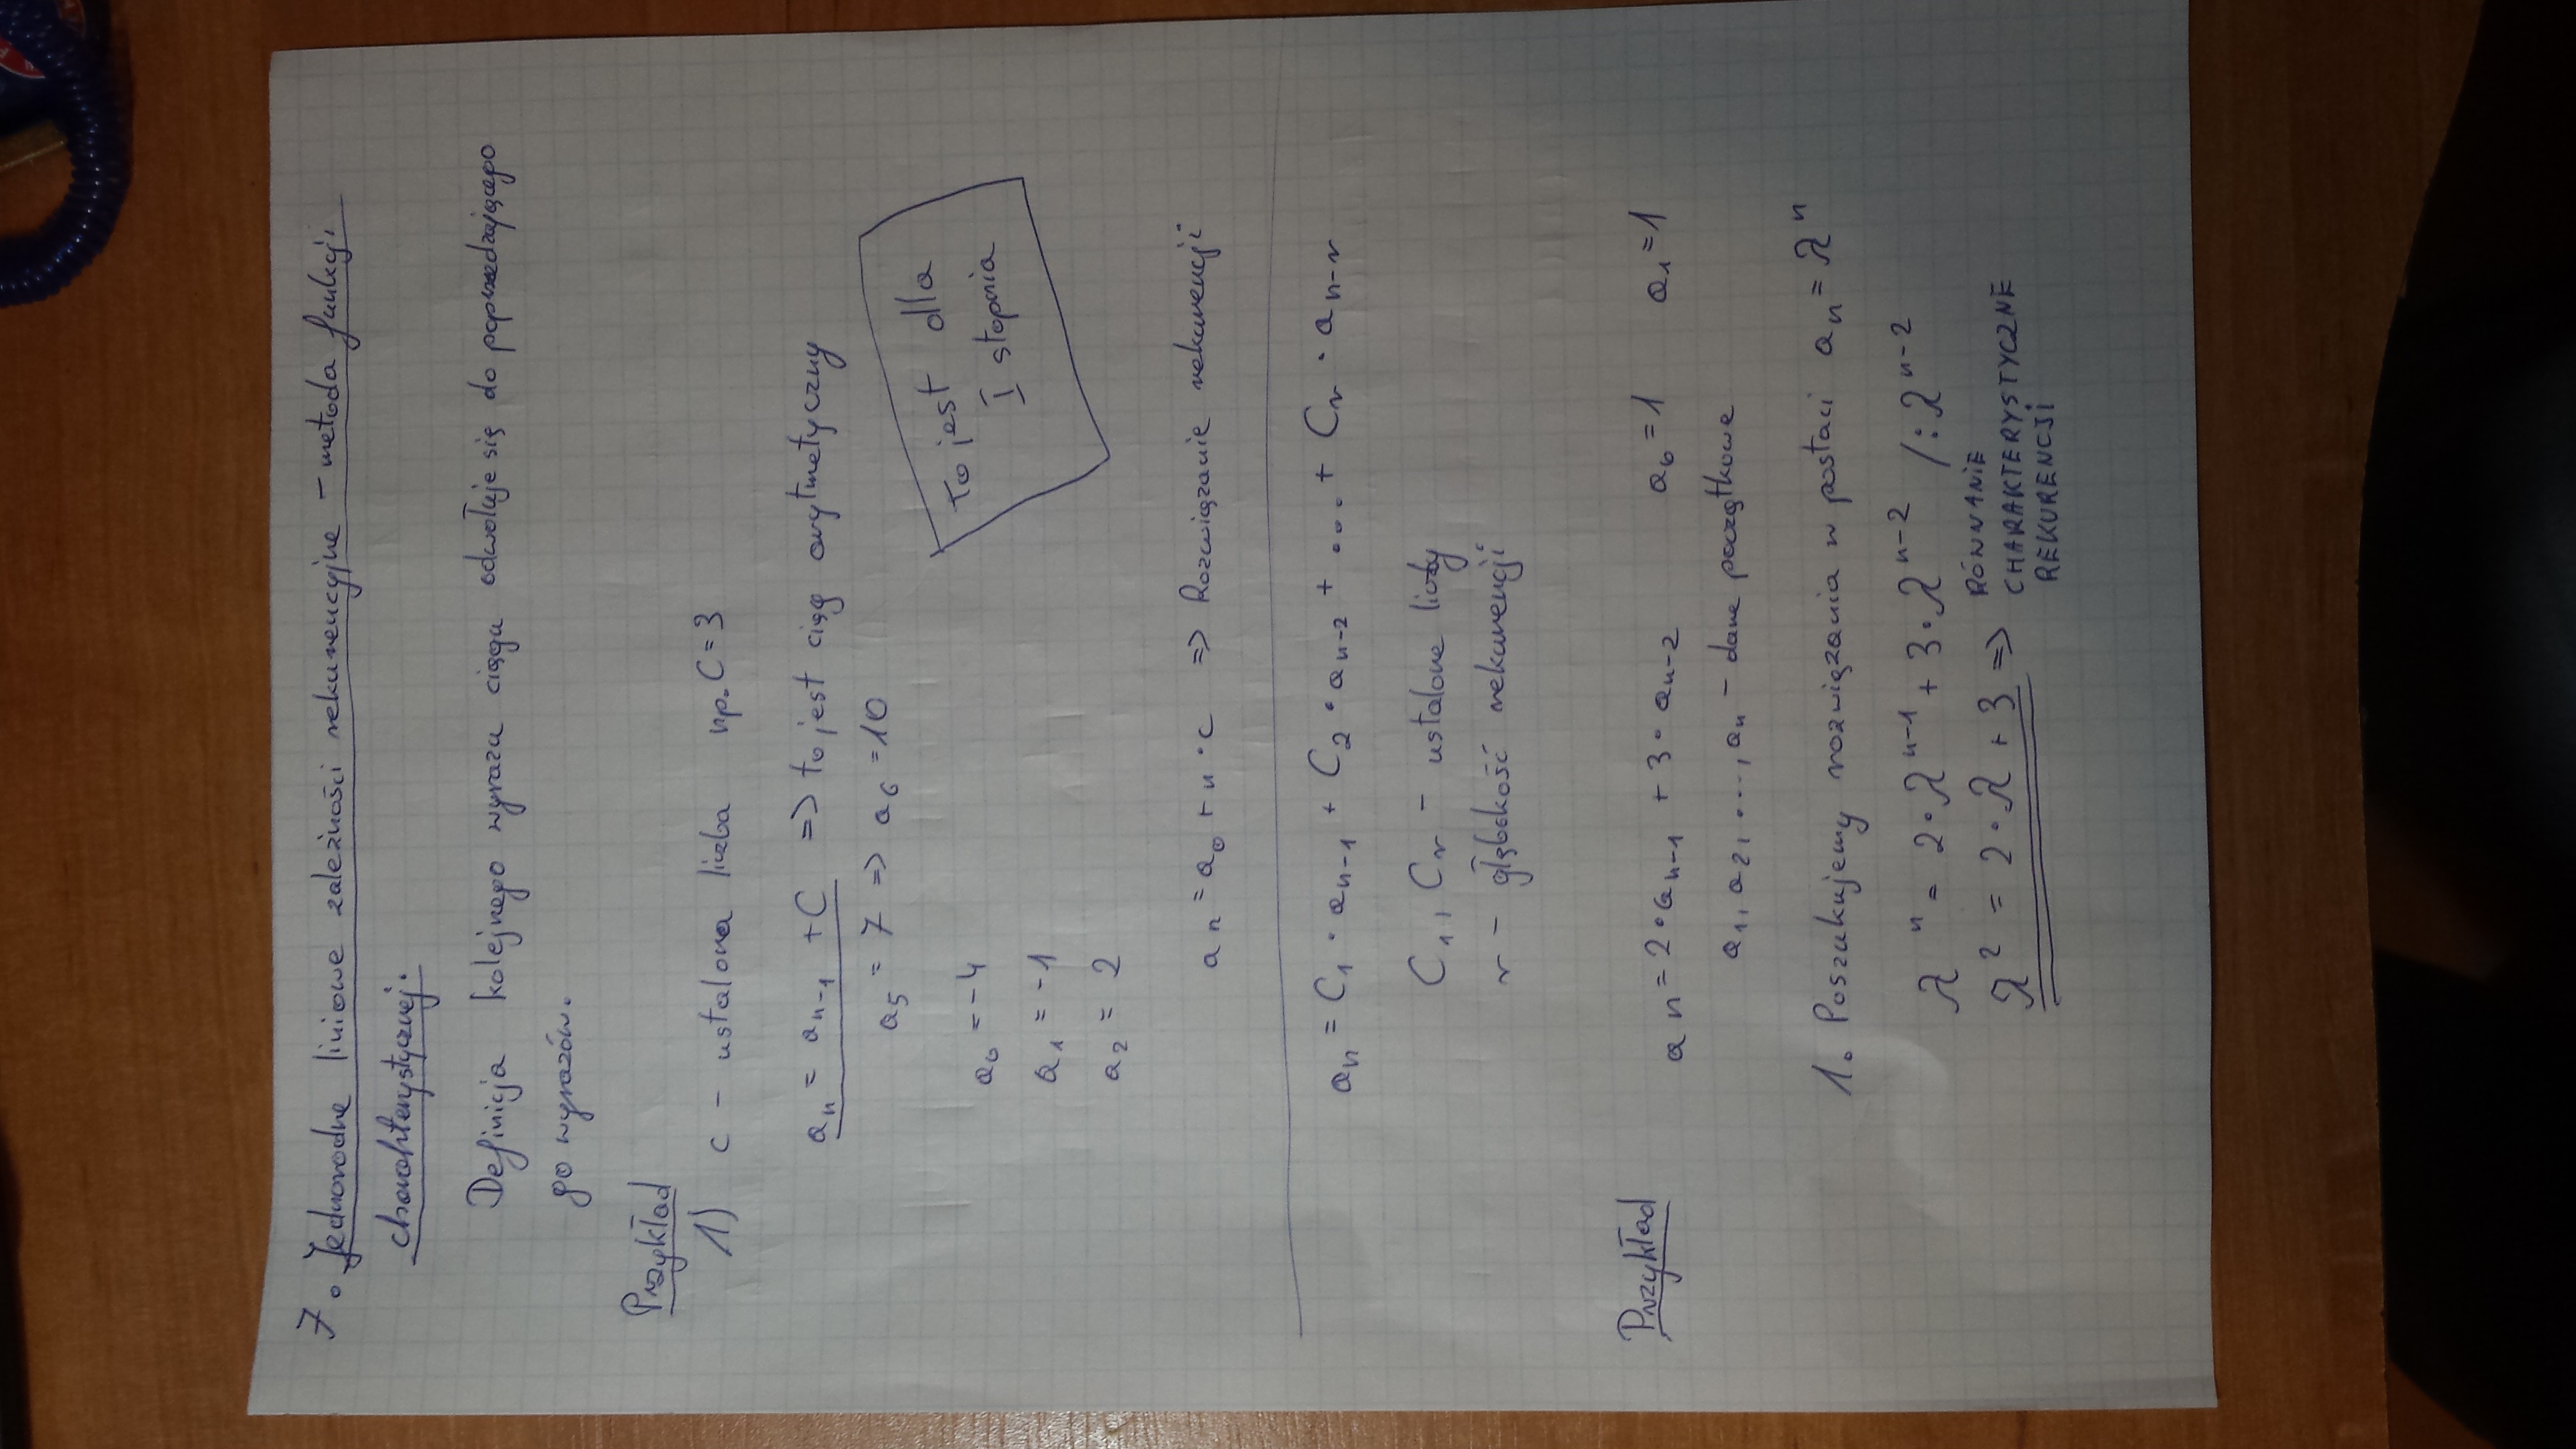 7. Jednorodne liniowe zależności rekurencyjne - metoda funkcji
charakterystycznej.
Definicja kolejnego wyrazu ciągu odwołuje się do poprzedzającego
go wyrazów.
Przykład
1) c - ustalona liczba np. C = 3
aₙ = aₙ₋₁ + C => to jest ciąg arytmetyczny
a₅ = 7 => a₆ = 10
To jest dla
I stopnia
a₀ = -4
a₁ = -1
a₂ = 2
aₙ = a₀ + n · c => Rozwiązanie rekurencji
aₙ = C₁ · aₙ₋₁ + C₂ · aₙ₋₂ + ... + Cᵣ · aₙ₋ᵣ
C₁, Cᵣ - ustalone liczby
r - głębokość rekurencji
Przykład aₙ = 2 · aₙ₋₁ + 3 · aₙ₋₂ a₀ = 1 a₁ = 1
a₁, a₂, ..., aₙ - dane początkowe
1. Poszukujemy rozwiązania w postaci aₙ = λⁿ
λⁿ = 2 · λⁿ⁻¹ + 3 · λⁿ⁻² /: λⁿ⁻²
λ² = 2 · λ + 3 => RÓWNANIE
CHARAKTERYSTYCZNE
REKURENCJI